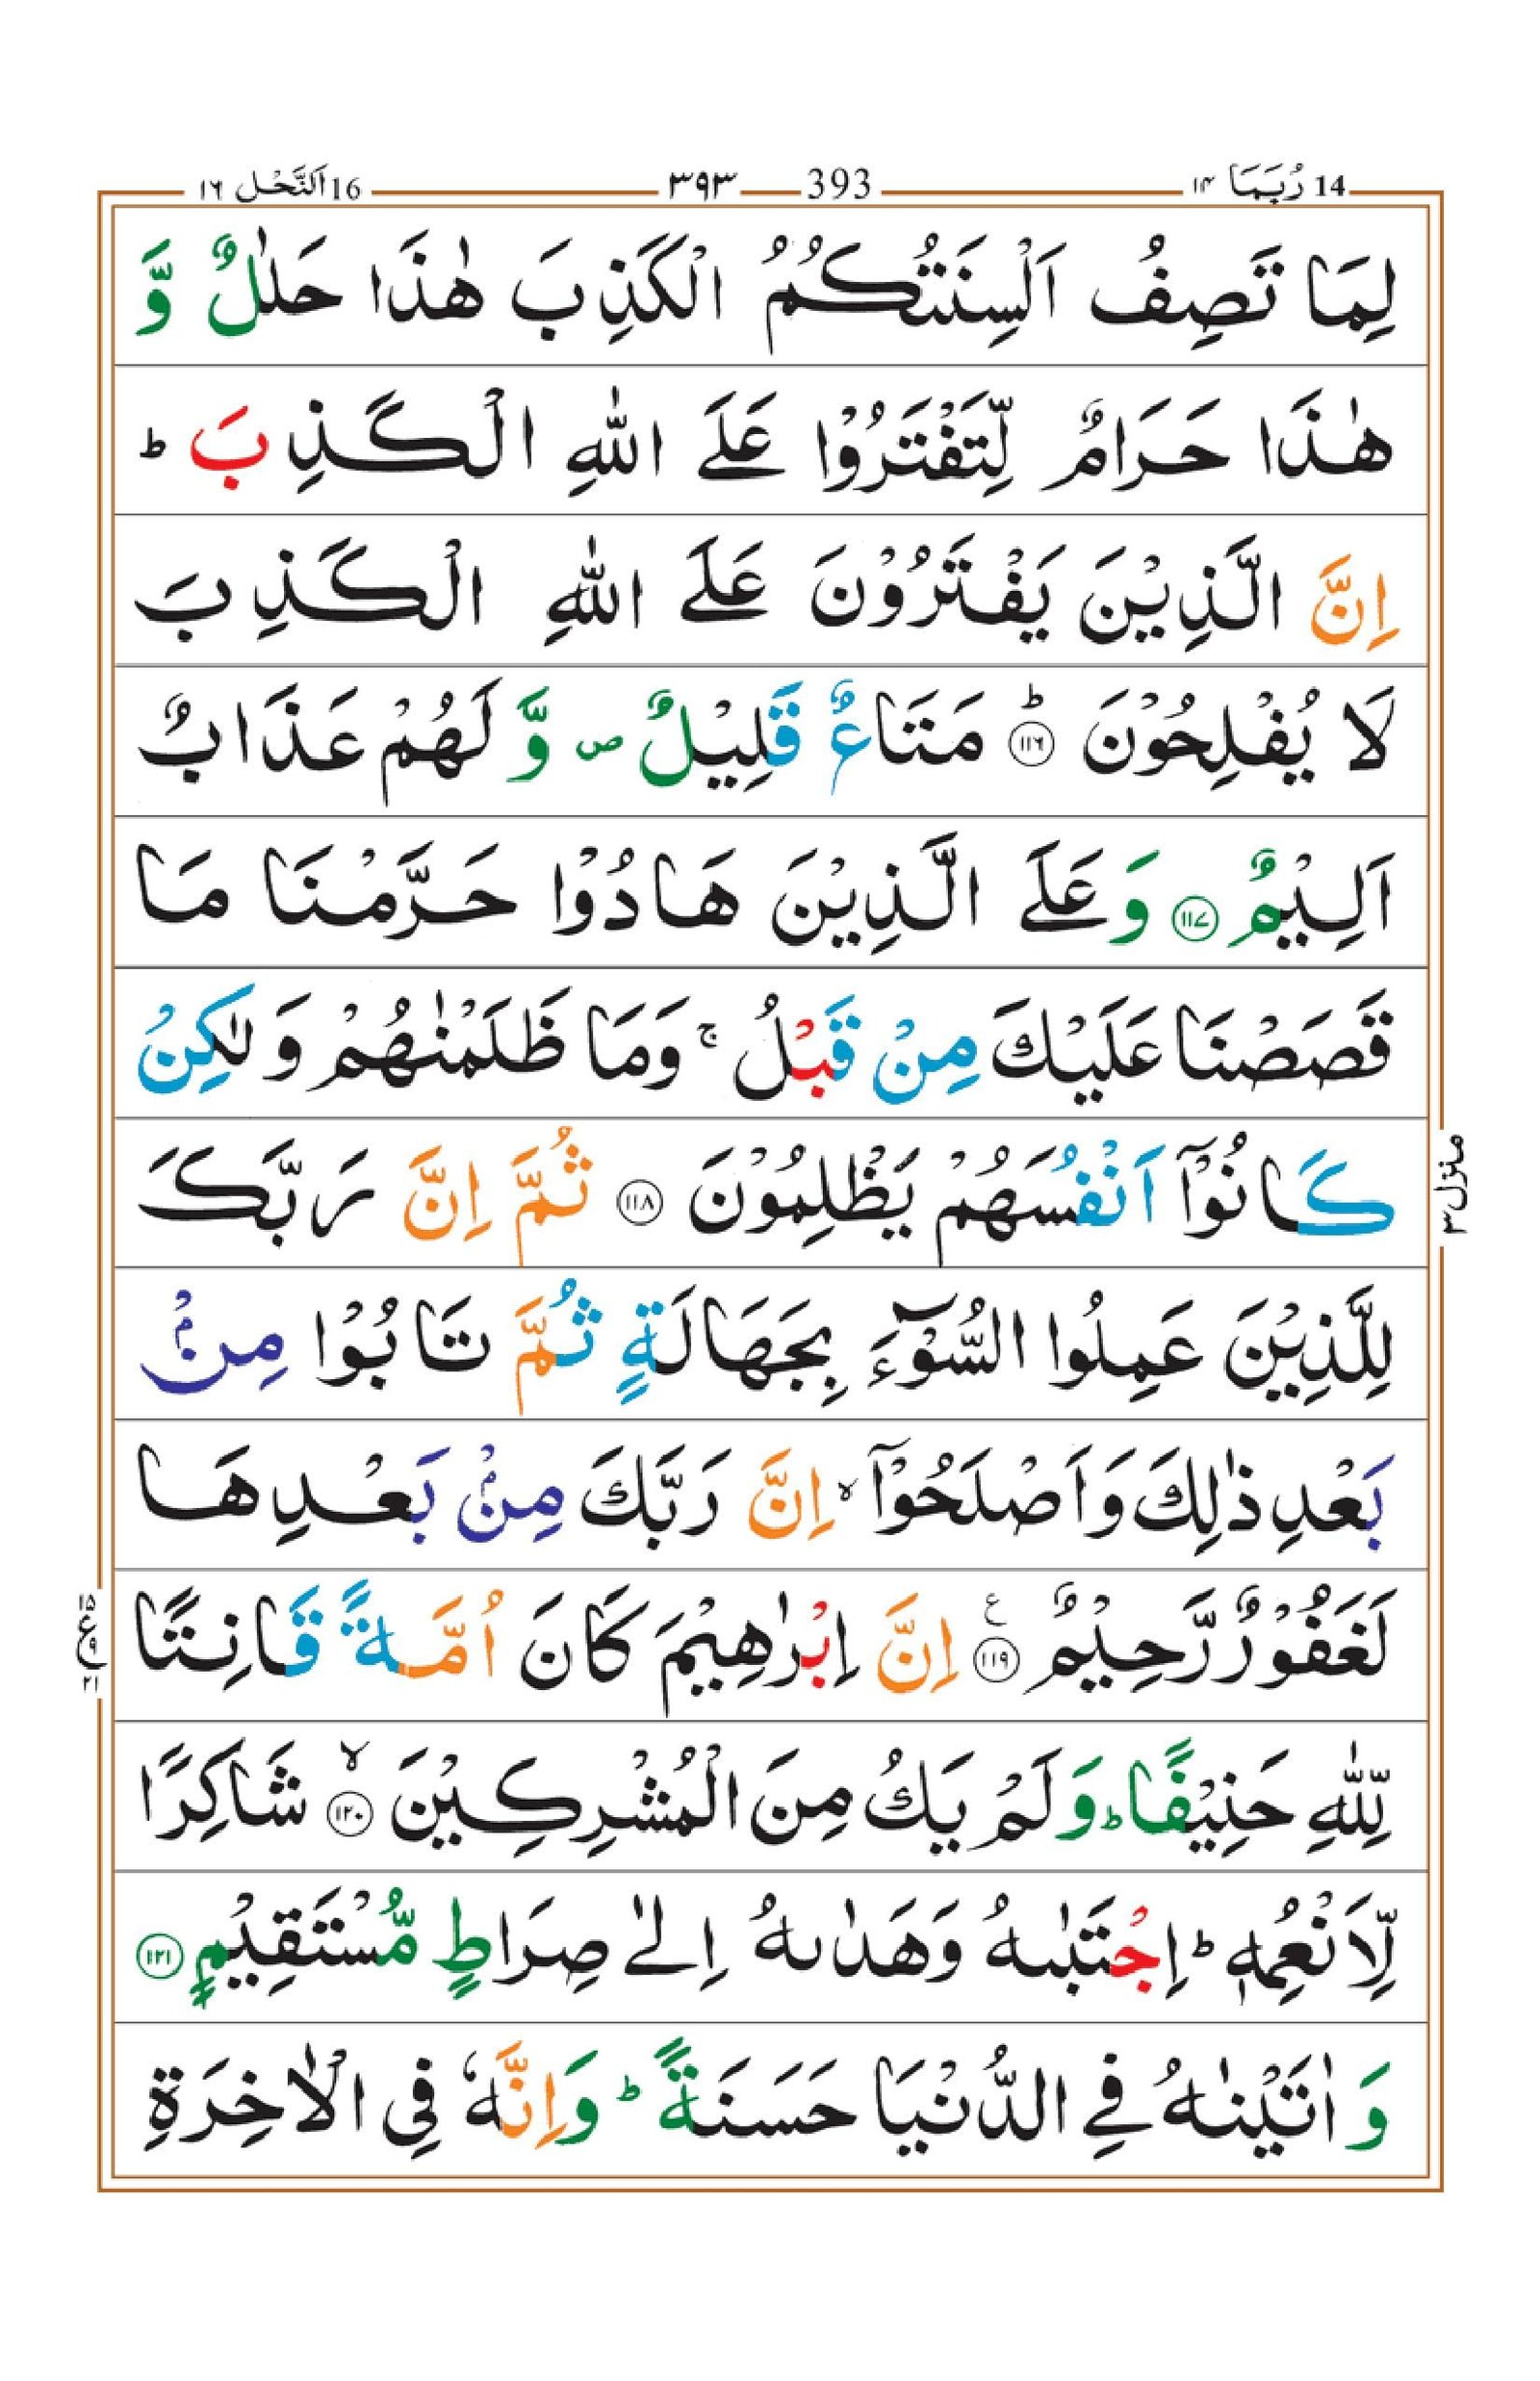 14 رُبَمَا ١٤ 393 ٣٩٣ 16 اَلنَّحْل ١٦
لِمَا تَصِفُ اَلْسِنَتُكُمُ الْكَذِبَ هٰذَا حَلٰلٌ وَّ
هٰذَا حَرَامٌ لِّتَفْتَرُوْا عَلَے اللّٰهِ الْكَذِبَ ؕ
اِنَّ الَّذِيْنَ يَفْتَرُوْنَ عَلَے اللّٰهِ الْكَذِبَ
لَا يُفْلِحُوْنَ ؕ ١١٦ مَتَاعٌ قَلِيْلٌ ص وَّ لَهُمْ عَذَابٌ
اَلِيْمٌ ١١٧ وَ عَلَے الَّذِيْنَ هَادُوْا حَرَّمْنَا مَا
قَصَصْنَا عَلَيْكَ مِنْ قَبْلُ ۚ وَمَا ظَلَمْنٰهُمْ وَ لٰكِنْ
كَانُوْۤا اَنْفُسَهُمْ يَظْلِمُوْنَ ١١٨ ثُمَّ اِنَّ رَبَّكَ
لِلَّذِيْنَ عَمِلُوا السُّوْٓءَ بِجَهَالَةٍ ثُمَّ تَابُوْا مِنْۢ
بَعْدِ ذٰلِكَ وَ اَصْلَحُوْۤا ۙ اِنَّ رَبَّكَ مِنْۢ بَعْدِهَا
لَغَفُوْرٌ رَّحِيْمٌ ١١٩ ع اِنَّ اِبْرٰهِيْمَ كَانَ اُمَّةً قَانِتًا
لِّلّٰهِ حَنِيْفًا ؕ وَ لَمْ يَكُ مِنَ الْمُشْرِكِيْنَ ۙ ١٢٠ شَاكِرًا
لِّاَنْعُمِهٖ ؕ اِجْتَبٰىهُ وَهَدٰىهُ اِلٰى صِرَاطٍ مُّسْتَقِيْمٍ ١٢١
وَ اٰتَيْنٰهُ فِے الدُّنْيَا حَسَنَةً ؕ وَ اِنَّهٗ فِى الْاٰخِرَةِ
منزل ٣
١٥
ع ٩
٢١